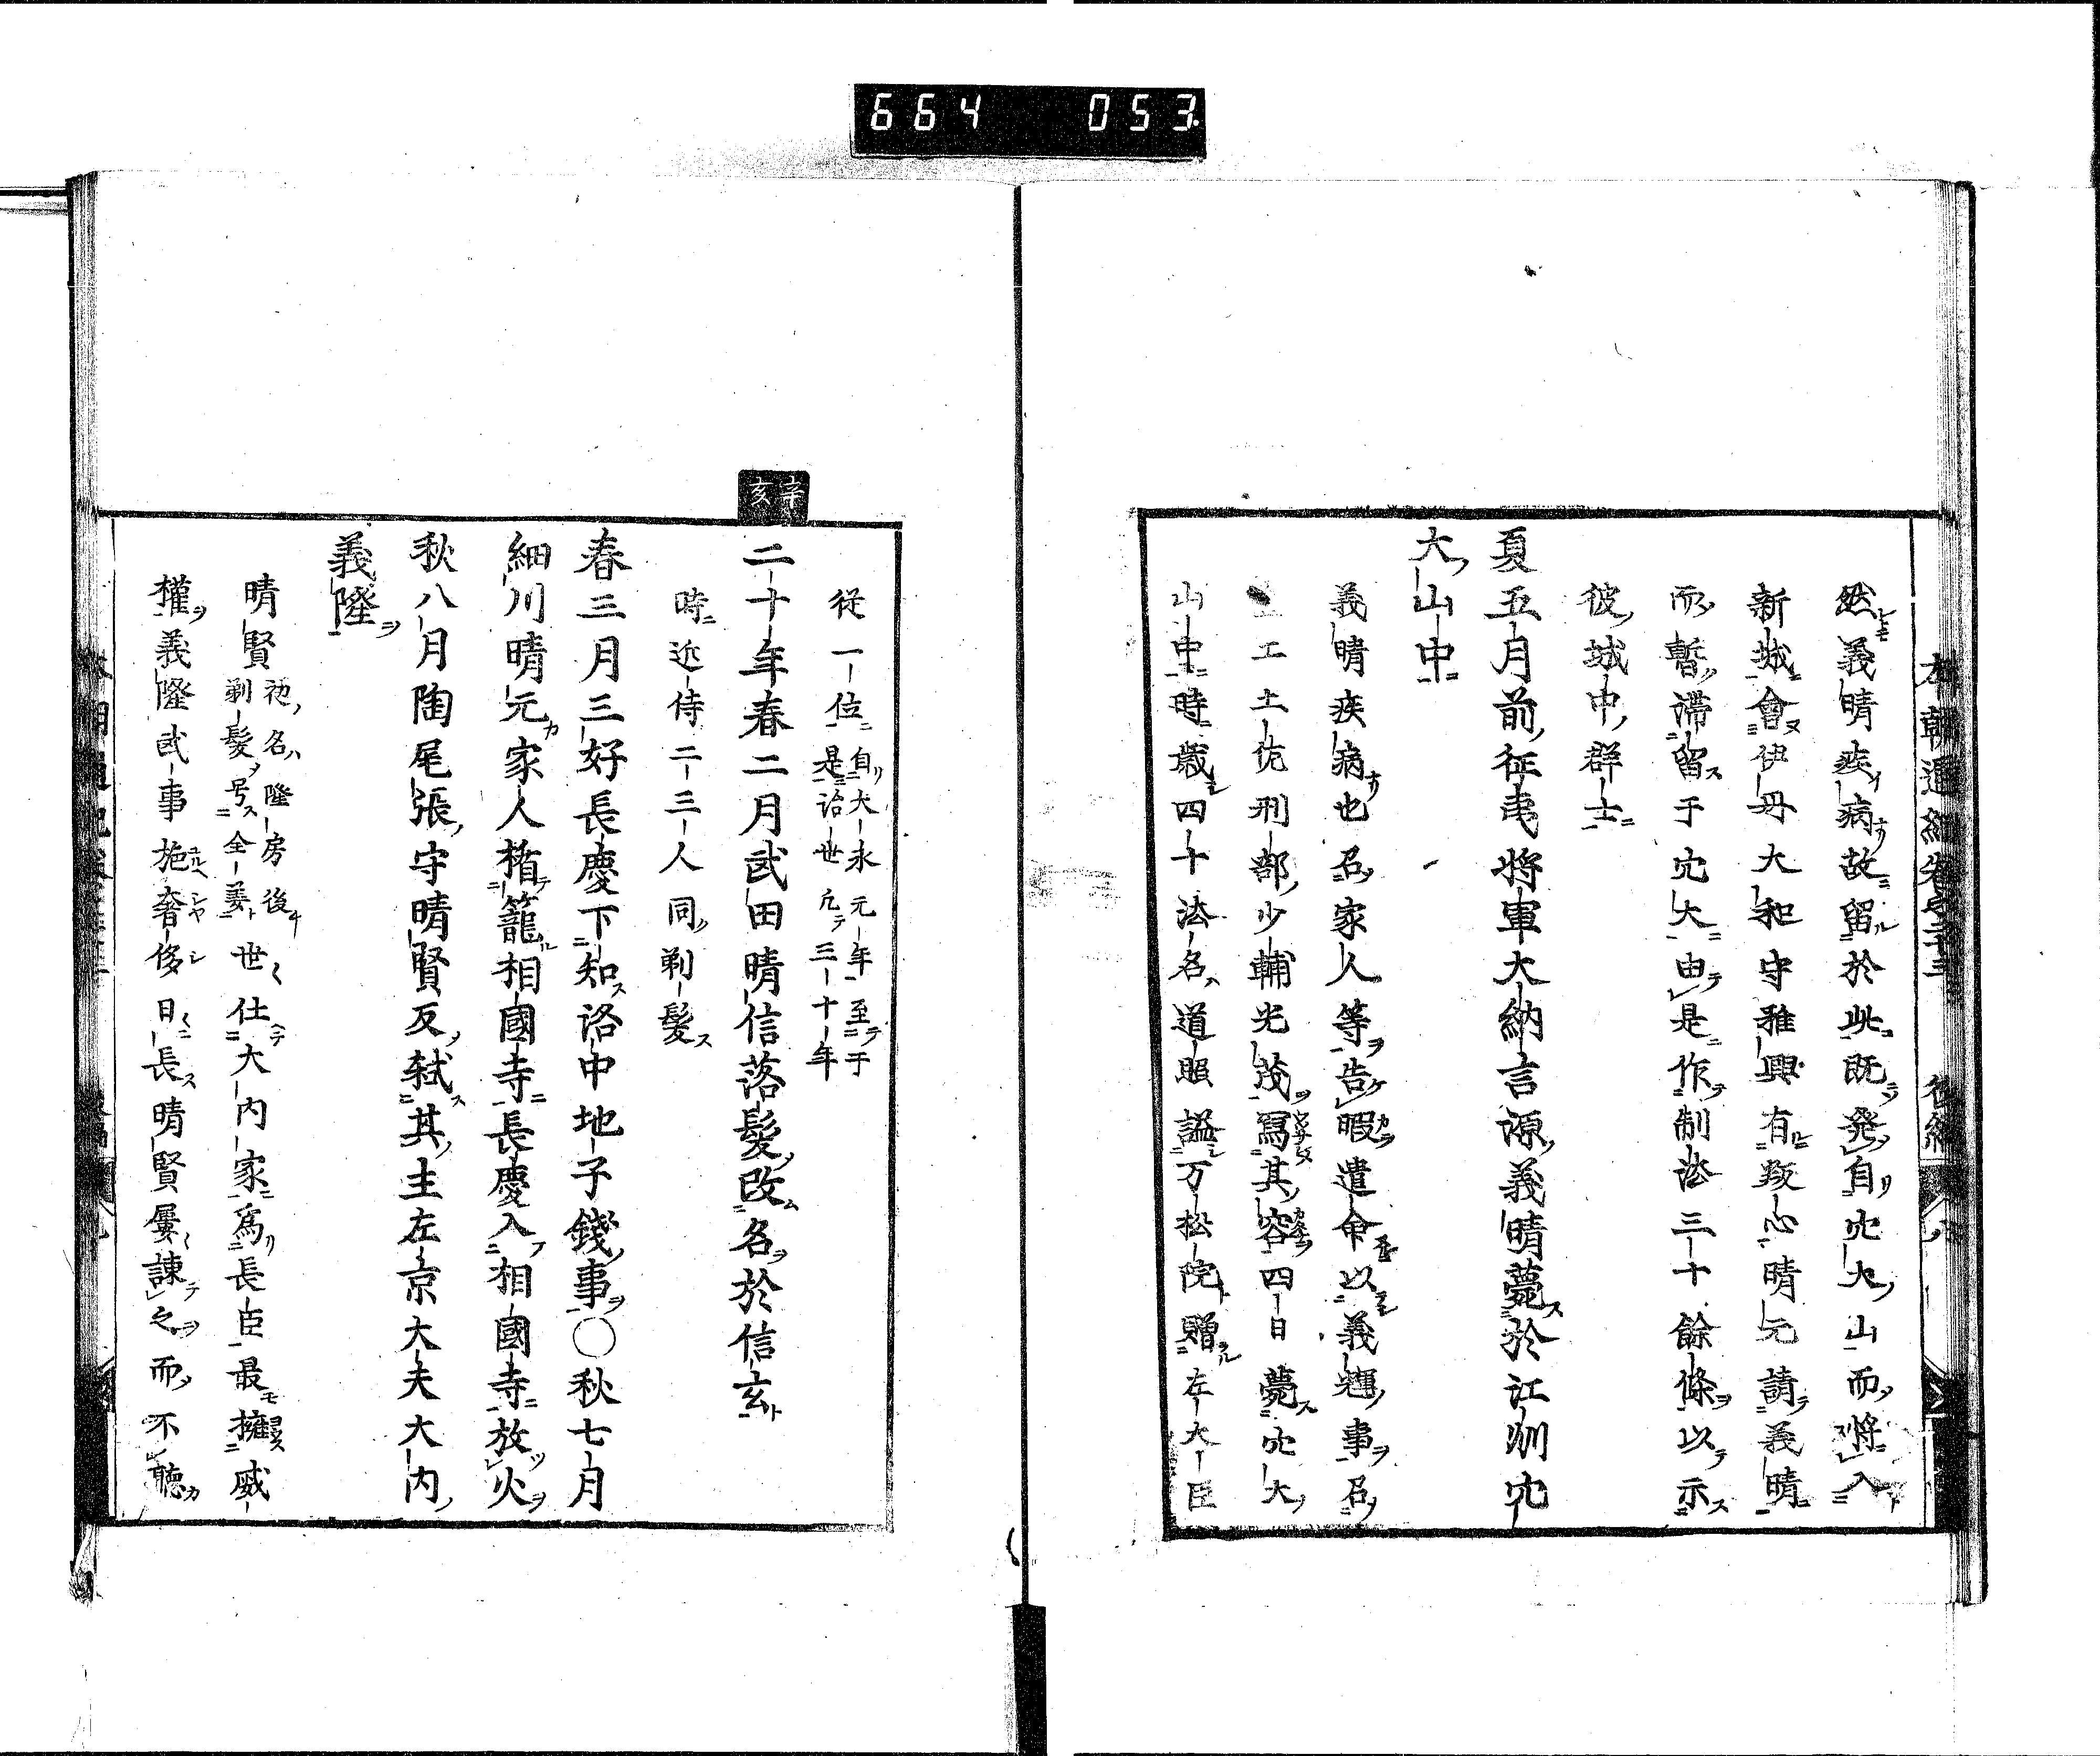 664 053
然義晴疾病故留於此既発自穴太山而将入
新城會伊丹大和守雅興有叛心晴元請義晴
而暫滞留于穴太由是作制法三十餘條以示
彼城中群士
夏五月前征夷将軍大納言源義晴薨於江州穴
太山中
義晴疾病也召家人等告暇遣命以義輝事召
工土佐刑部少輔光茂寫其容四日薨穴太
山中時歳四十法名道照謚万松院贈左大臣
從一位
自大永元年至于
是治世凢三十年
辛亥
二十年春二月武田晴信落髪改名於信玄
時近侍二三人同剃髪
春三月三好長慶下知洛中地子錢事〇秋七月
細川晴元家人楯籠相國寺長慶入相國寺放火
秋八月陶尾張守晴賢反弑其主左京大夫大内
義隆
晴賢
初名隆房後
剃髪号全姜
世仕大内家爲長臣最擁威
權義隆武事施奢侈日長晴賢屢諌之而不聴